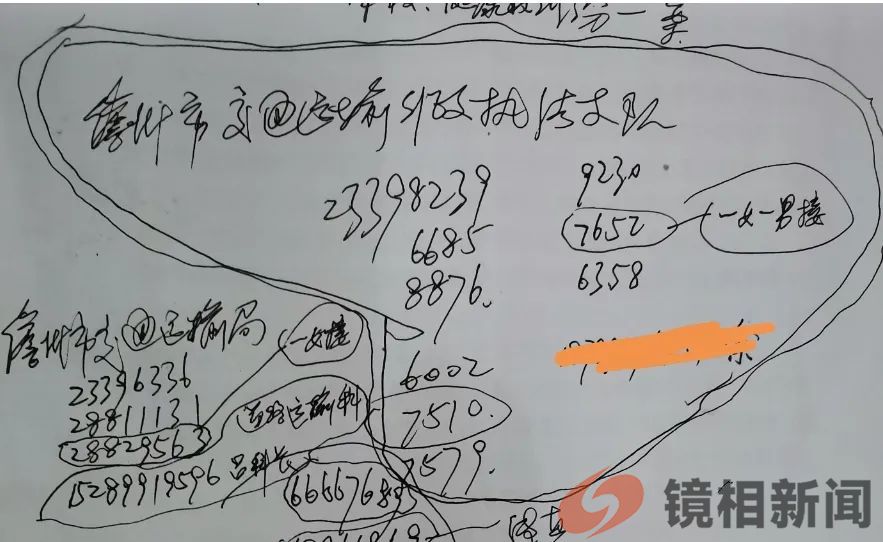 儋州市交通运输行政执法支队
23398239
6685
8876.
6002
7510.
7579.
9230
7652
6358
一女一男接
儋州市交通运输局
23396336
28811131
28829563
一女接
道路运输科
15289919596 吕科长
镜相新闻